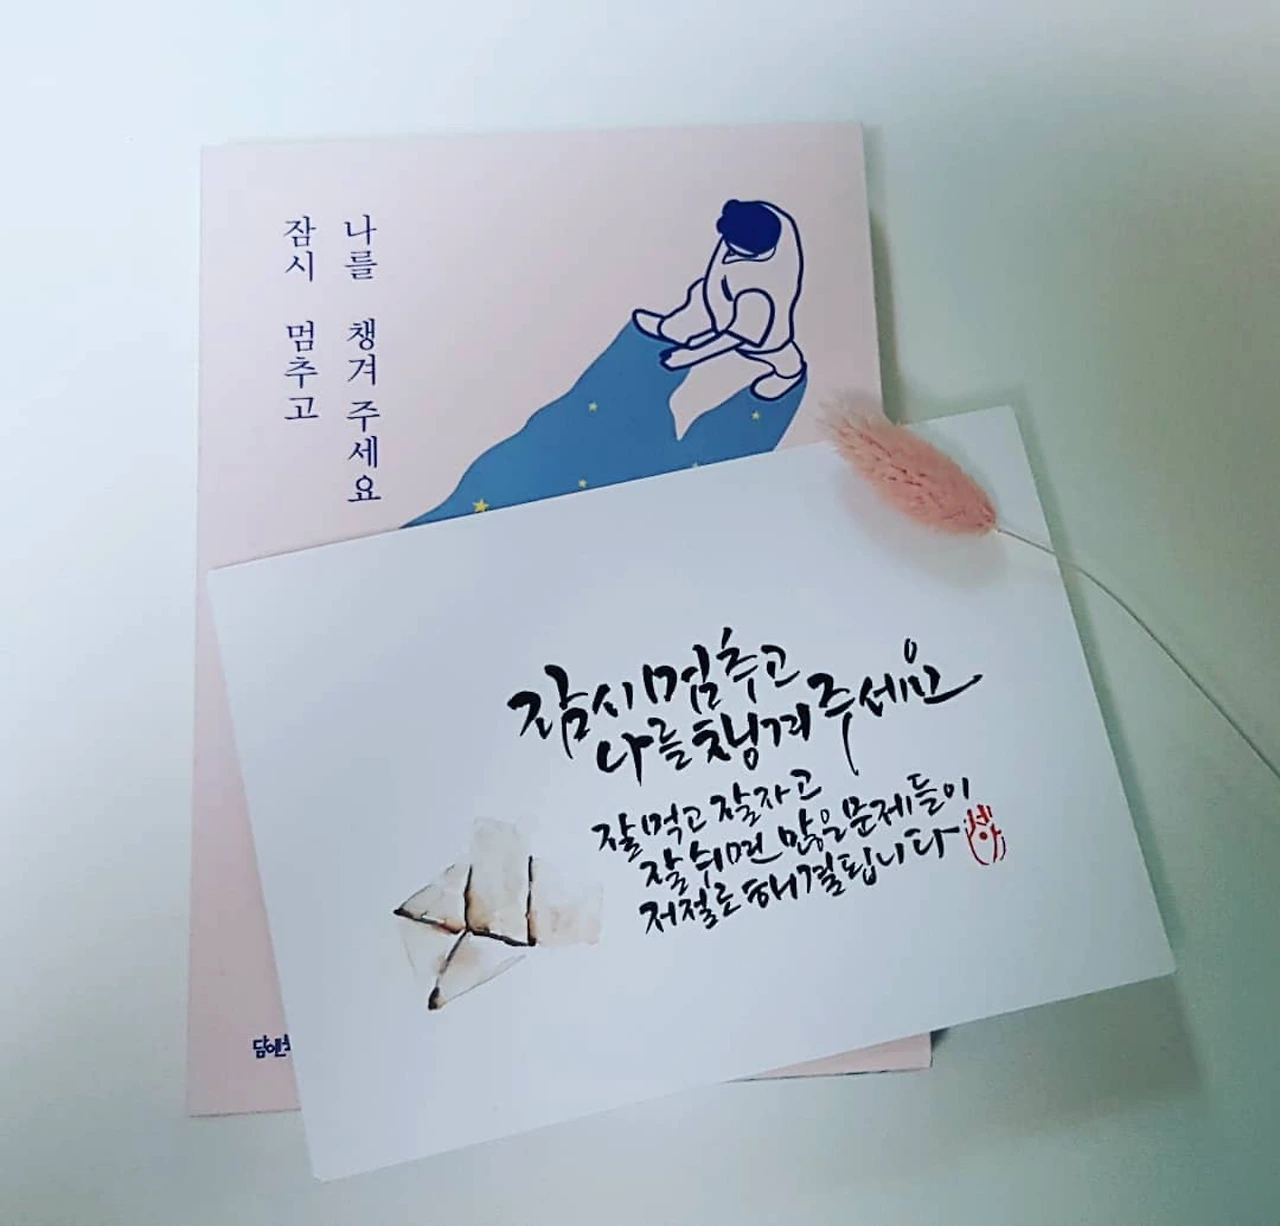 잠시 멈추고
나를 챙겨 주세요
잠시 멈추고
나를 챙겨 주세요
잘 먹고 잘 자고
잘 쉬면 많은 문제들이
저절로 해결됩니다
담앤